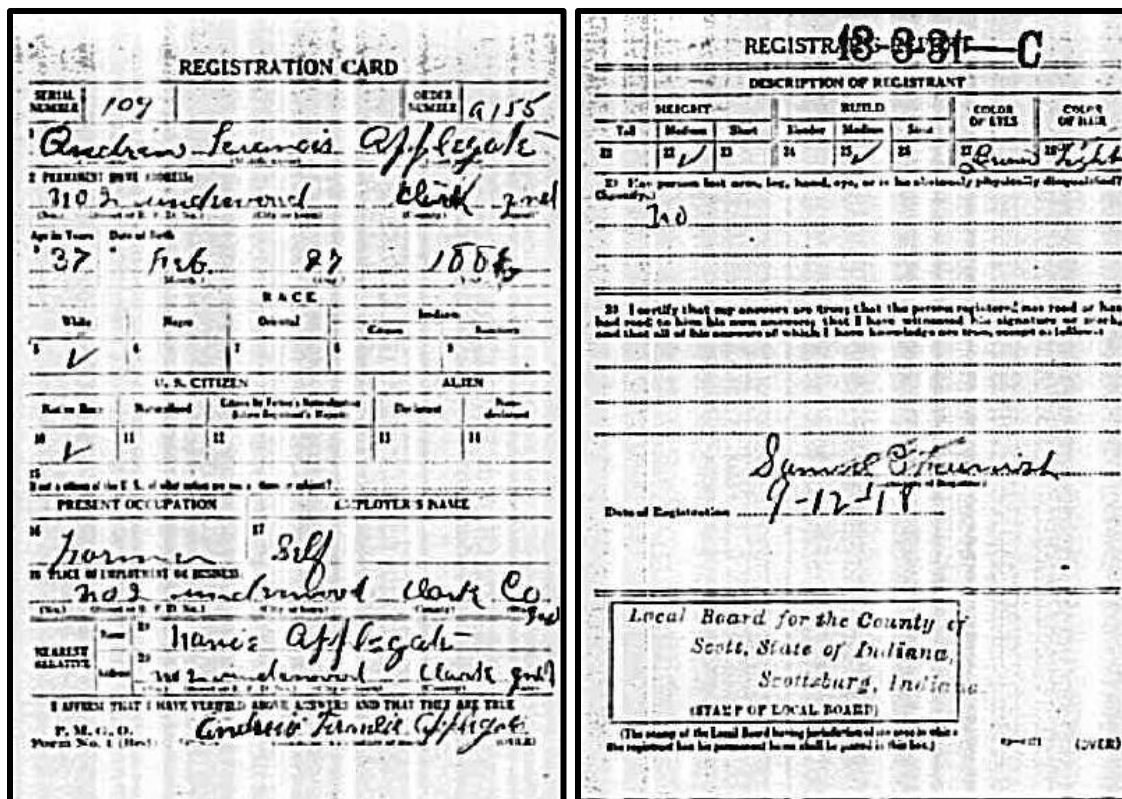 REGISTRATION CARD
SERIAL NUMBER 109
ORDER NUMBER a155
1 Andrew Francis Applegate
2 PERMANENT HOME ADDRESS:
No 2 underwood Clark Ind
Age in Years Date of Birth
3 37 4 Feb. 27
RACE
White Negro Oriental Indian
Citizen
5 ✓ 6 7 8 9
U. S. CITIZEN ALIEN
Native Born Naturalized Citizen by Father's Naturalization Before Registrant's Majority Declarant Non-declarant
10 ✓ 11 12 13 14
15
If not a citizen of the U. S., of what nation are you a citizen or subject?
PRESENT OCCUPATION EMPLOYER'S NAME
16 17
Farmer Self
18 PLACE OF EMPLOYMENT OR BUSINESS:
No 2 underwood Clark Co Ind
(No.) (City or town) (County)
NEAREST RELATIVE
Name 19 Applegate
Address 20 No 2 underwood Clark Ind
I AFFIRM THAT I HAVE VERIFIED ABOVE ANSWERS AND THAT THEY ARE TRUE
P. M. G. O.
Form No. 1 (Red) Andrew Francis Applegate
(OVER)
C
DESCRIPTION OF REGISTRANT
HEIGHT BUILD COLOR OF EYES COLOR OF HAIR
Tall Medium Short Slender Medium Stout
21 22 ✓ 23 24 25 ✓ 26 27 Brown 28 Light
29 Has person lost arm, leg, hand, eye, or is he obviously physically disqualified?
(Specify.)
No
30 I certify that my answers are true; that the person registered has read or has
had read to him his own answers; that I have witnessed his signature or mark,
and that all of his answers of which I have knowledge are true, except as follows:
Samuel
Date of Registration 9-12-18
Local Board for the County of
Scott, State of Indiana,
Scottsburg, Indiana
(STAMP OF LOCAL BOARD)
(The stamp of the Local Board having jurisdiction of the area in which
the registrant has his permanent home shall be placed in this box.)
(OVER)